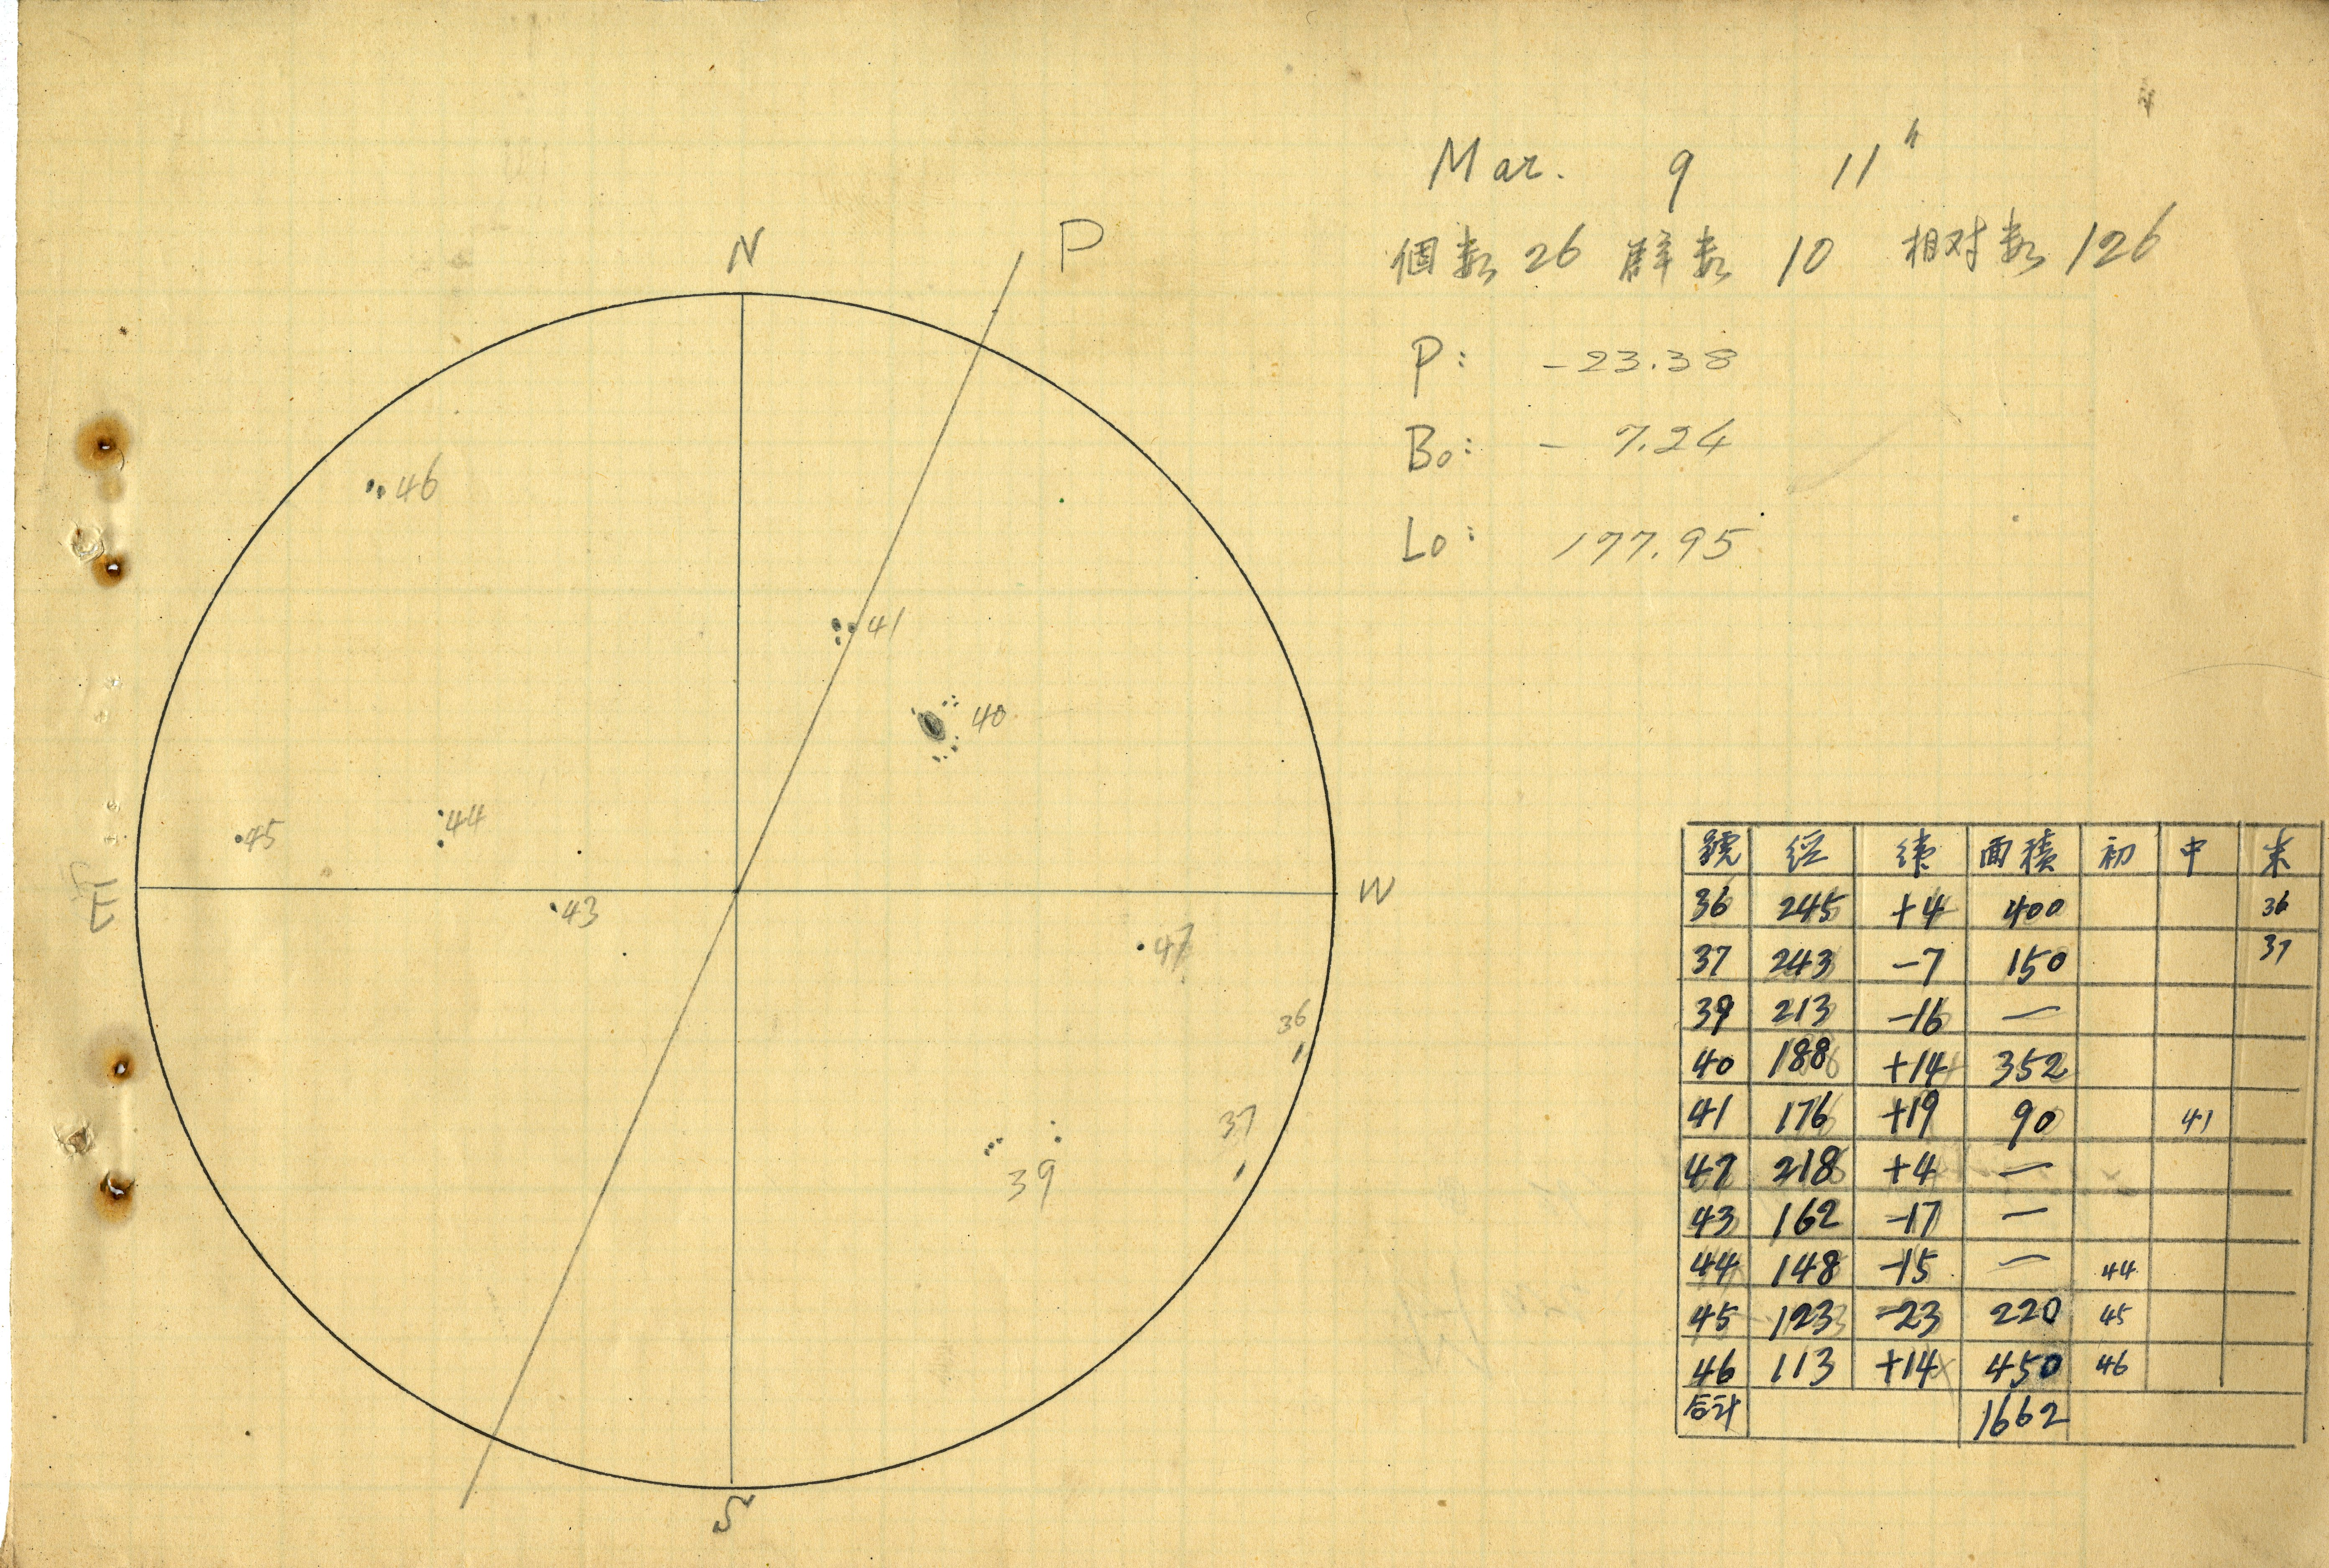 Mar. 9 11h
個数 26 群数 10 相对数 126
P: -23.38
Bo: - 7.24
Lo: 177.95
N
P
46
41
40
44
45
E
W
43
47
36
37
39
S
號 経 緯 面積 初 中 末
36 245 +4 400 36
37 243 -7 150 37
39 213 -16 —
40 188 +14 352
41 176 +19 90 41
47 218 +4 —
43 162 -17 —
44 148 -15 — 44
45 123 -23 220 45
46 113 +14 450 46
合計 1662